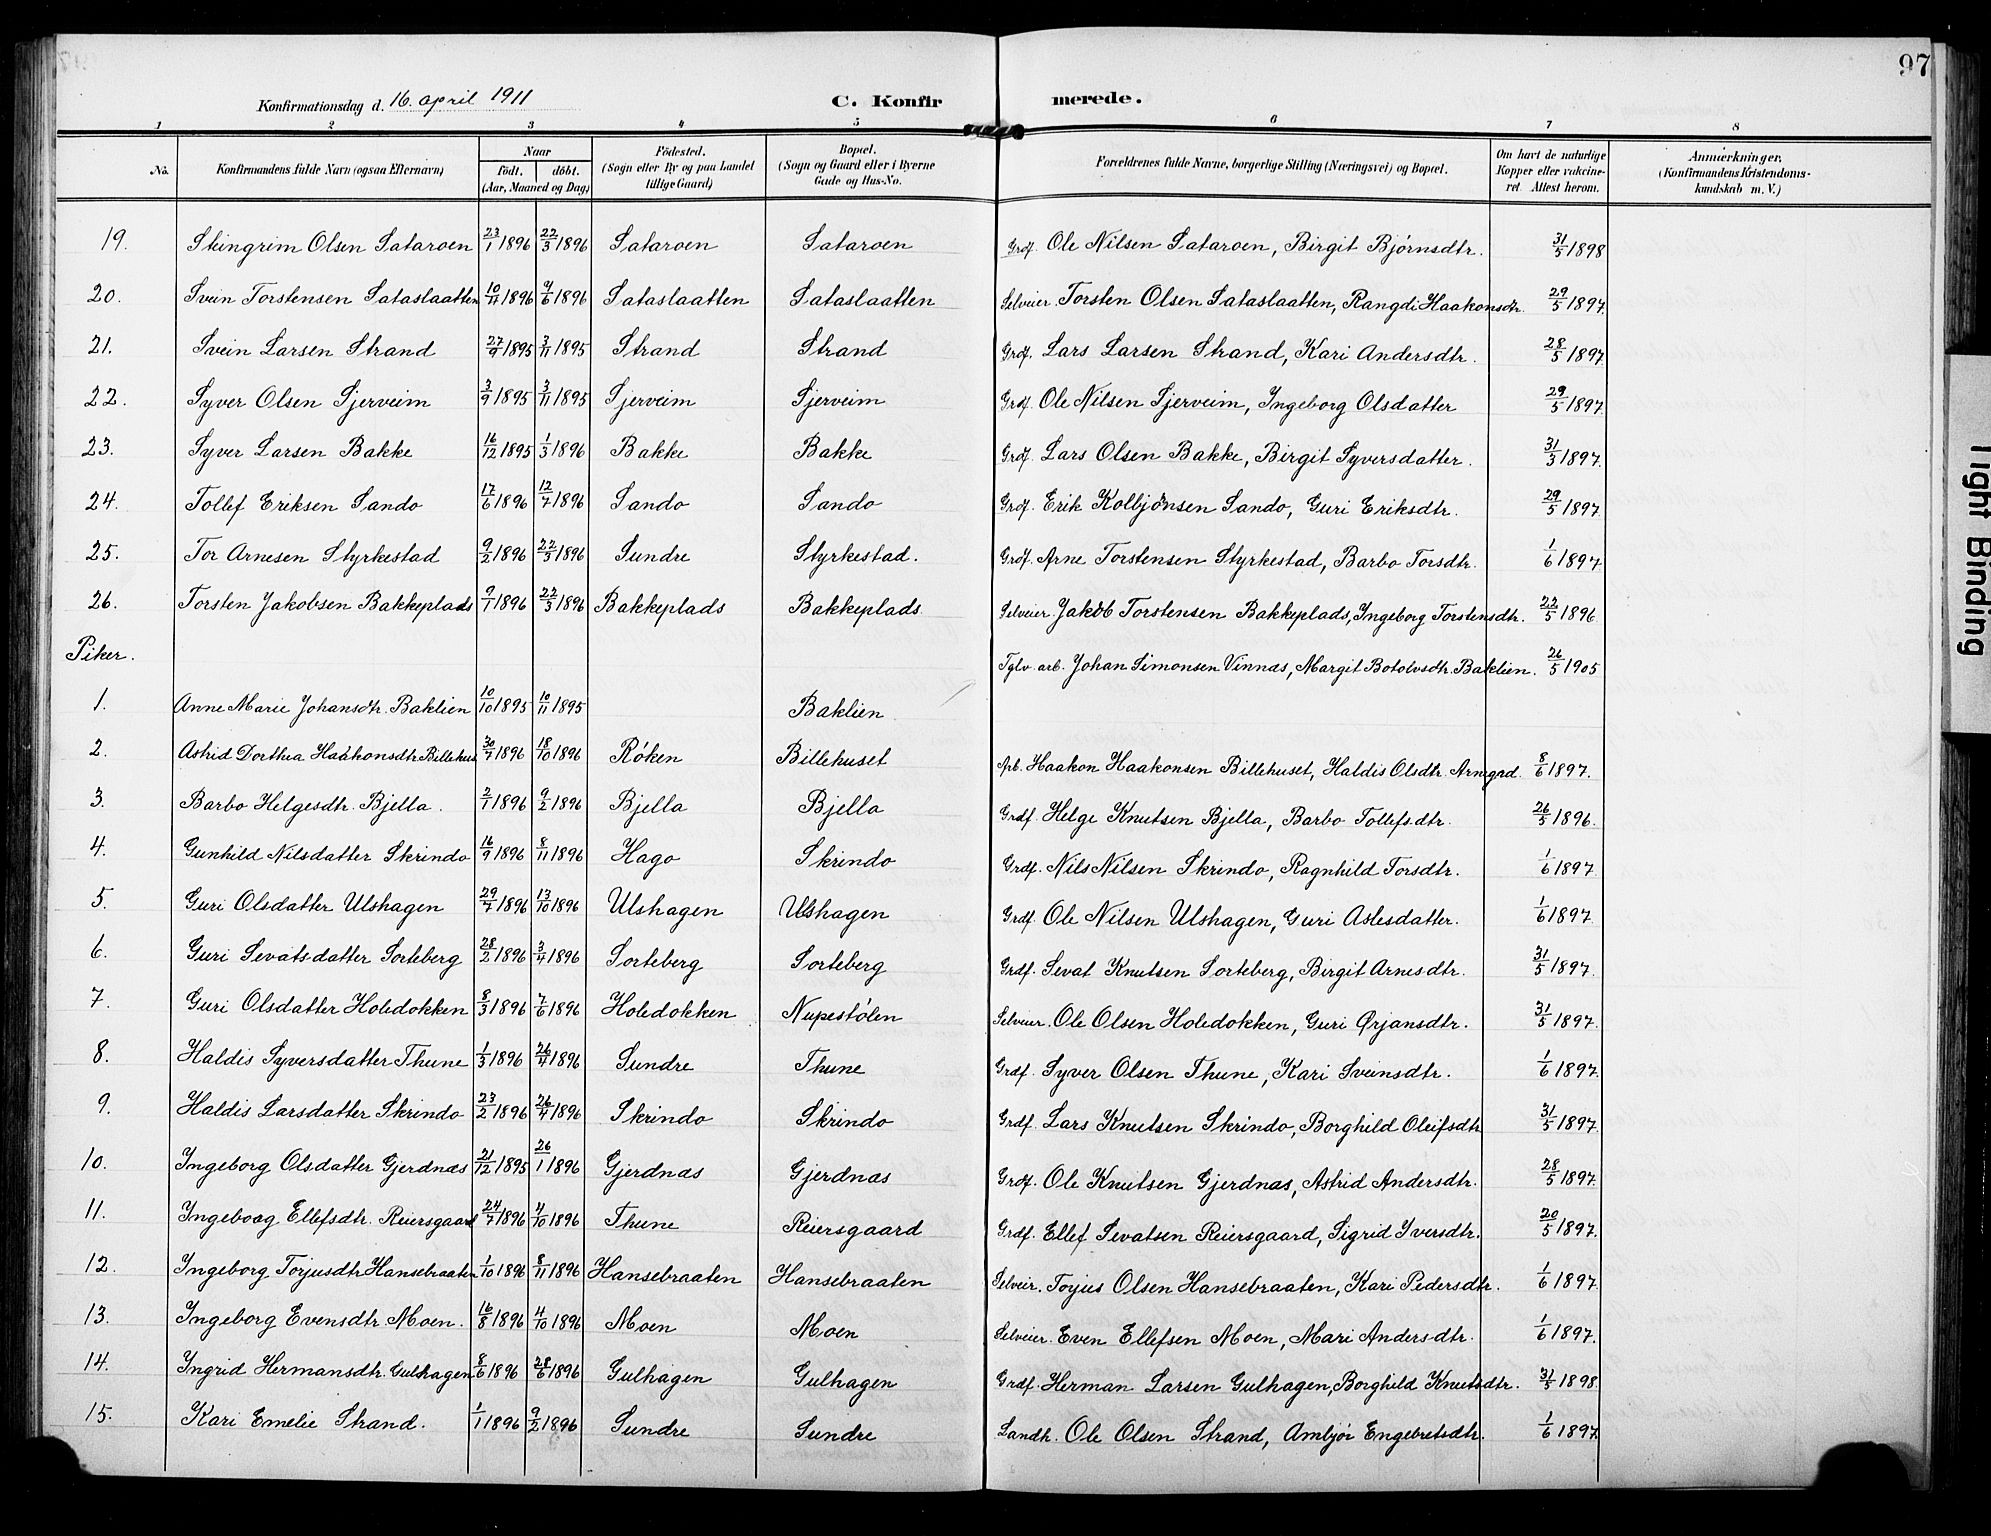 97
Konfirmationsdag d. 16. april 1911 C. Konfirmerede.
1 2 3 4 5 6 7 8
No. Konfirmandens fulde Navn (ogsaa Efternavn) Naar født. døbt. (Aar, Maaned og Dag) Fødested. (Sogn eller By og paa Landet tillige Gaard) Bopæl. (Sogn og Gaard eller i Byerne Gade og Hus-No. Forældrenes fulde Navne, borgerlige Stilling (Næringsvei) og Bopæl. Om havt de naturlige Kopper eller vakcineret. Attest herom. Anmærkninger. (Konfirmandens Kristendomskundskab m. V.)
19. Skingrim Olsen Sataroen 23/1 1896 22/3 1896 Sataroen Sataroen Grdf. Ole Nilsen Sataroen, Birgit Bjørnsdtr. 31/5 1898
20. Svein Torstensen Sataslaatten 10/4 1896 4/6 1896 Sataslaatten Sataslaatten Selveier. Torsten Olsen Sataslaatten, Rangdi Haakonsdtr. 29/5 1897.
21. Svein Larsen Strand 27/9 1895 3/11 1895 Strand Strand Grdf. Lars Larsen Strand, Kari Andersdtr. 28/5 1897.
22. Syver Olsen Sjerveim 3/9 1895 3/11 1895 Sjerveim Sjerveim Grdf. Ole Nilsen Sjerveim, Ingeborg Olsdatter 29/5 1897.
23. Syver Larsen Bakke 16/12 1895 1/3 1896 Bakke Bakke Grdf. Lars Olsen Bakke, Birgit Syversdatter. 31/3 1897.
24. Tollef Eriksen Sando 17/6 1896 12/7 1896 Sando Sando Grdf. Erik Kolbjønsen Sando, Guri Eriksdtr. 29/5 1897.
25. Tor Arnesen Styrkestad 9/2 1896 22/3 1896 Sundre Styrkestad. Grdf. Arne Torstensen Styrkestad, Barbo Torsdtr. 1/6 1897.
26. Torsten Jakobsen Bakkeplads 9/1 1896 22/3 1896 Bakkeplads Bakkeplads. Selveier. Jakob Torstensen Bakkeplads, Ingeborg Torstensdtr. 22/5 1896.
Piker. Tglv. arb. Johan Simonsen Vinnæs, Margit Botolvsdtr. Baklien. 26/5 1905
1. Anne Marie Johansdtr. Baklien 10/10 1895 10/11 1895 Baklien.
2. Astrid Dorthea Haakonsdtr. Billehus. 30/7 1896 18/10 1896 Røken Billehuset Arb. Haakon Haakonsen Billehuset, Haldis Olsdtr. Arnegrd. 8/6 1897.
3. Barbo Helgesdtr. Bjella. 2/1 1896 9/2 1896 Bjella Bjella Grdf. Helge Knutsen Bjella, Barbo Tollefsdtr. 26/5 1896.
4. Gunhild Nilsdatter Skrindo 16/9 1896 8/11 1896 Hago Skrindo Grdf. Nils Nilsen Skrindo, Ragnhild Torsdtr. 1/6 1897.
5. Guri Olsdatter Ulshagen 29/7 1896 13/10 1896 Ulshagen Ulshagen Grdf. Ole Nilsen Ulshagen, Guri Aslesdatter. 1/6 1897.
6. Guri Sevatsdatter Sorteberg 28/2 1896 3/4 1896 Sorteberg Sorteberg Grdf. Sevat Knutsen Sorteberg, Birgit Arnesdtr. 31/5 1897.
7. Guri Olsdatter Holedokken 8/3 1896 7/6 1896 Holedokken Nupestølen Selveier. Ole Olsen Holedokken, Guri Ørjansdtr. 31/5 1897.
8. Haldis Syversdatter Thune 1/3 1896 26/4 1896 Sundre Thune Grdf. Syver Olsen Thune, Kari Sveinsdtr. 1/6 1897.
9. Haldis Larsdatter Skrindo 23/2 1896 26/4 1896 Skrindo Skrindo Grdf. Lars Knutsen Skrindo, Borghild Oleifsdtr 31/5 1897.
10. Ingeborg Olsdatter Gjerdnæs 21/12 1895 26/1 1896 Gjerdnæs Gjerdnæs Grdf. Ole Knutsen Gjerdnæs, Astrid Andersdtr. 28/5 1897.
11. Ingeborg Ellefsdtr. Reiersgaard 24/7 1896 4/10 1896 Thune Reiersgaard Grdf. Ellef Sevatsen Reiersgaard, Sigrid Iversdtr. 20/5 1897.
12. Ingeborg Torjusdtr. Hansebraaten 1/10 1896 8/11 1896 Hansebraaten Hansebraaten Selveier. Tojus Olsen Hansebraaten, Kari Pedersdtr. 1/6 1897.
13. Ingeborg Evensdtr. Moen. 16/8 1896 4/10 1896 Moen Moen Selveier. Even Ellefsen Moen, Mari Andersdtr. 1/6 1897.
14. Ingrid Hermansdtr. Gulhagen 8/6 1896 28/6 1896 Gulhagen Gulhagen Grdf. Herman Larsen Gulhagen, Borghild Knutsdtr. 31/5 1898.
15. Kari Emelie Strand. 1/1 1896 9/2 1896 Sundre Sundre Landh. Ole Olsen Strand, Ambjør Engebretsdtr. 1/6 1897.
Tight Binding